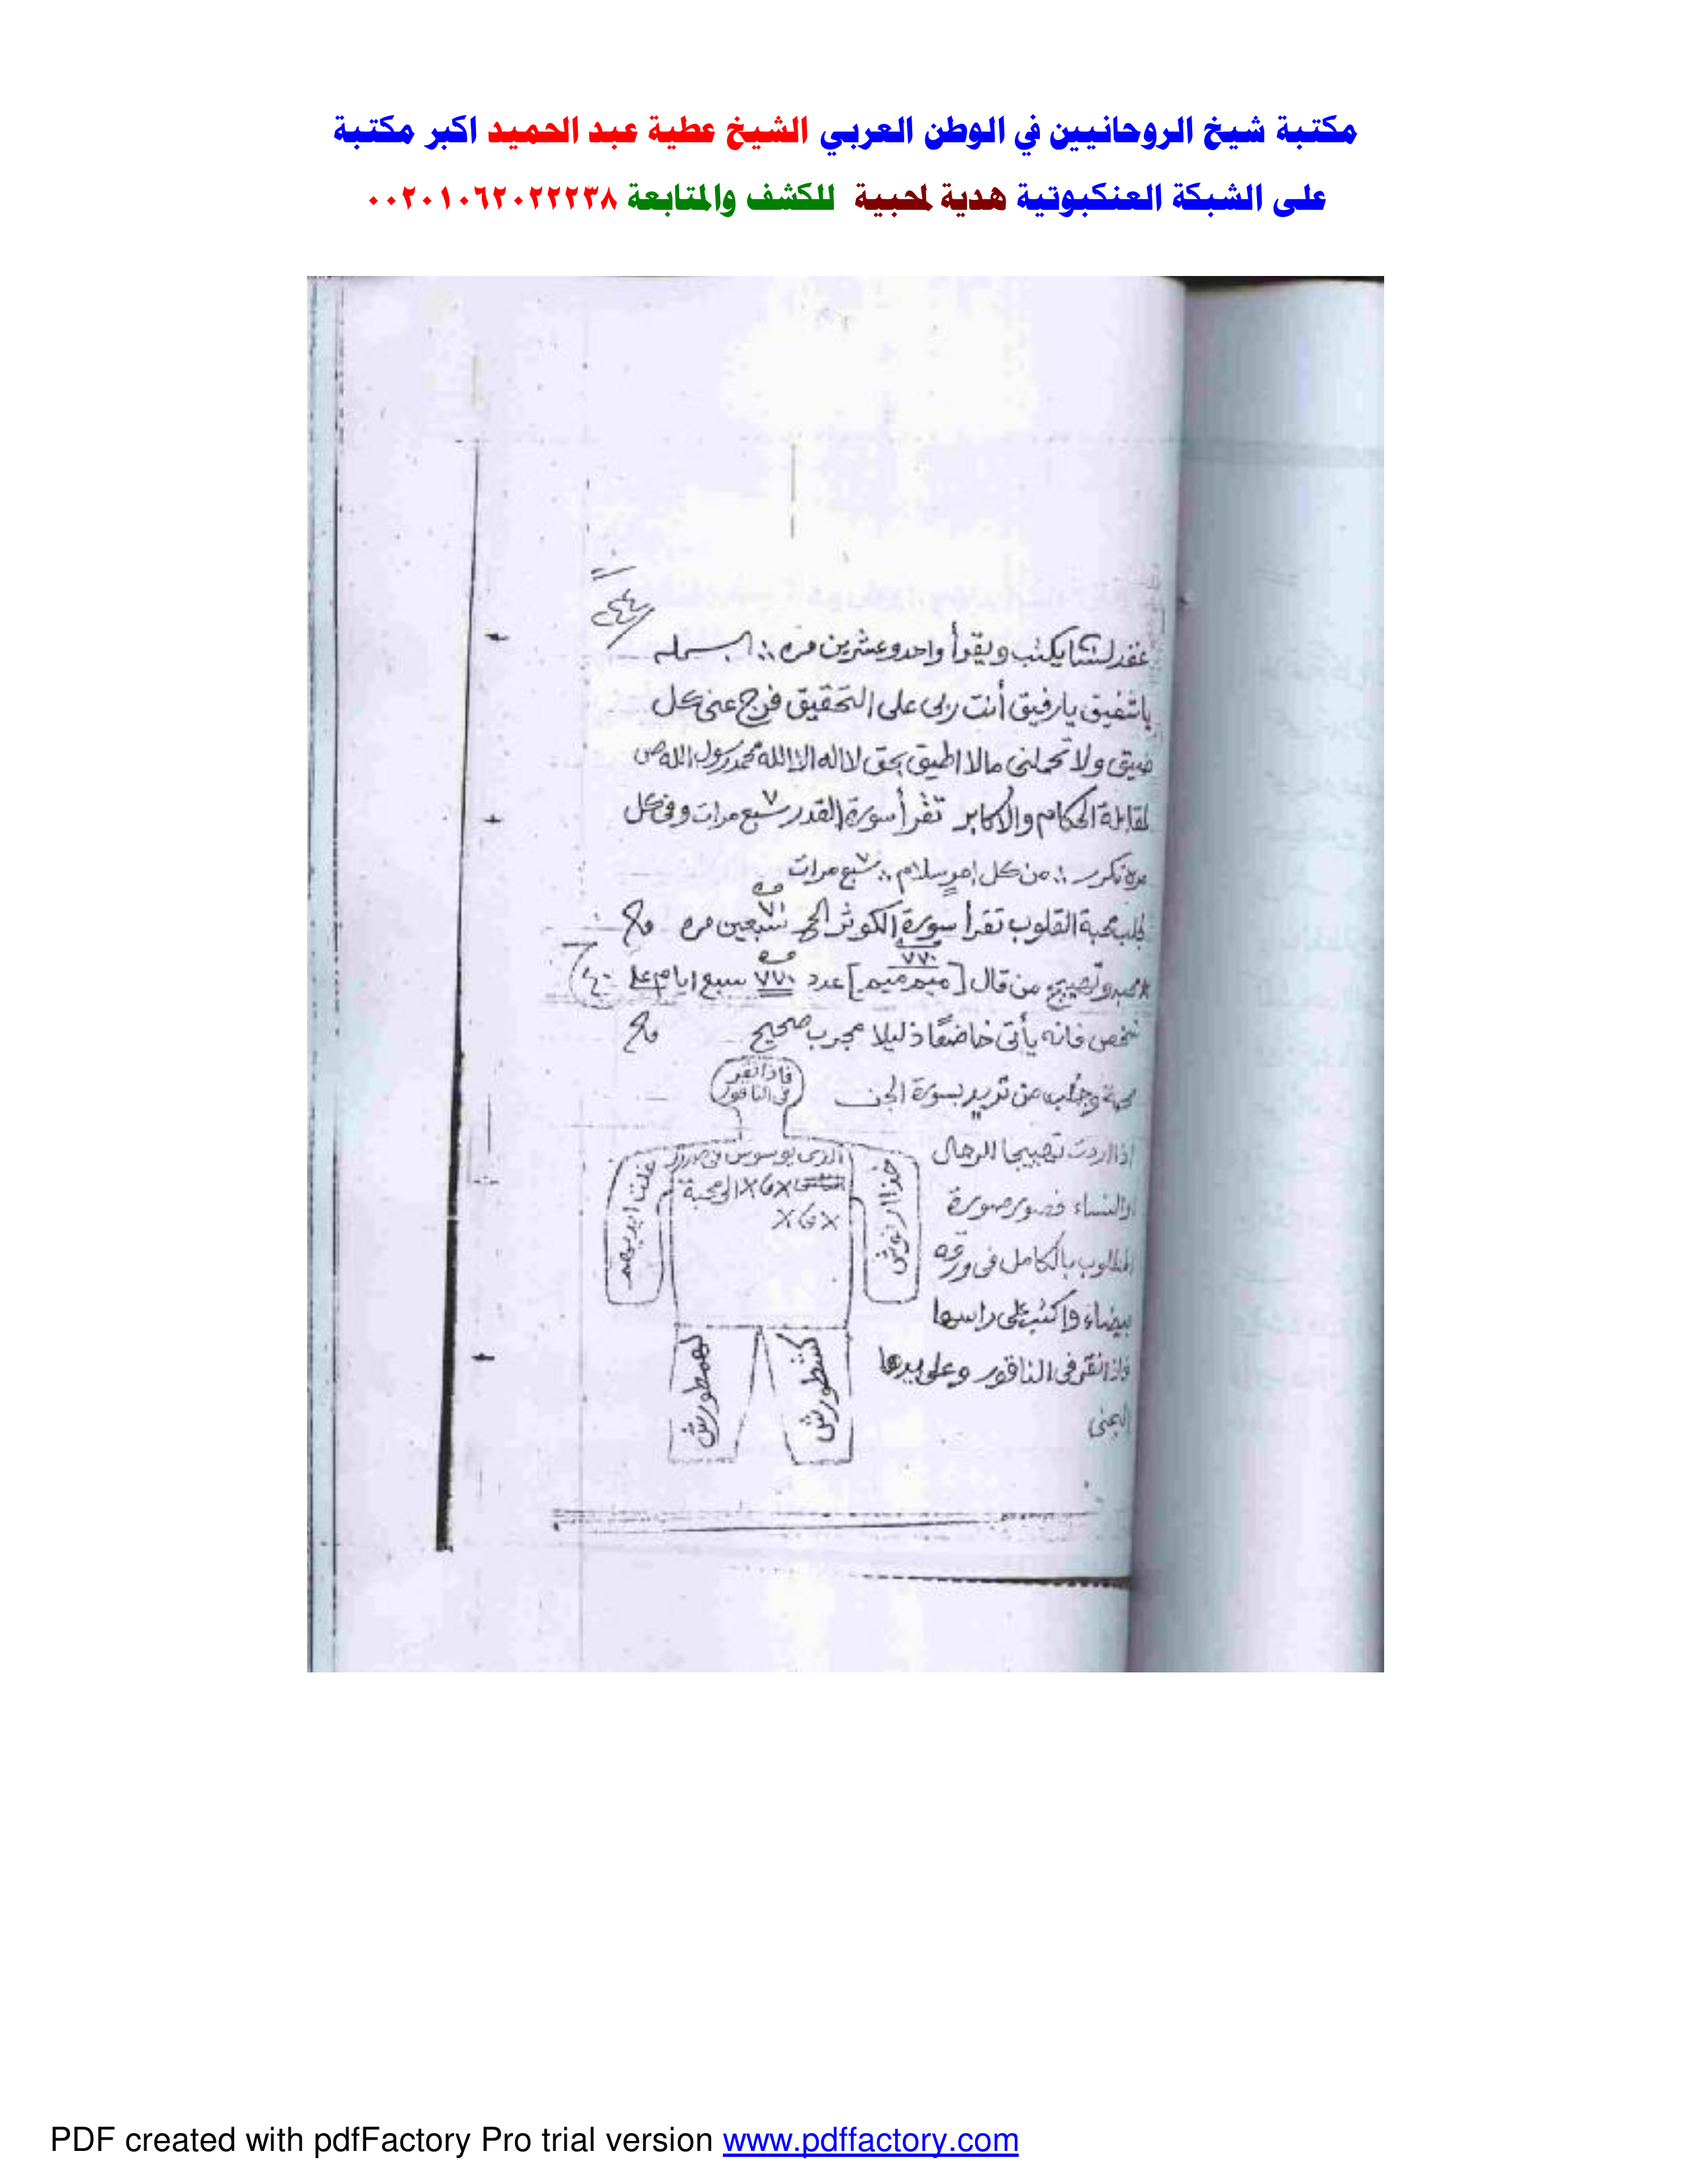 مكتبة شيخ الروحانيين في الوطن العربي الشيخ عطية عبد الحميد اكبر مكتبة
على الشبكة العنكبوتية هدية لمحبية للكشف والمتابعة ٠٠٢٠١٠٦٢٠٢٢٢٣٨
يكتب ويقرأ واحد وعشرين مره ∴ البسمله
ياشفيق يارفيق أنت ربى على التحقيق فرج عنى كل
ضيق ولا تحملنى مالا اطيق بحق لااله الاالله محمد رسول الله ص
لمقابلة الحكام والأكابر تقرأ سورة القدر سبع ٧ مرات وفى كل
مره تكرر ∴ من كل امر سلام ∴ سبع ٧ مرات
لجلب محبة القلوب تقرأ سورة الكوثر الخ سبعين مره
من قال [ميم ميم] عدد ٧٧٠ سبع ايام على
٧٧٠
شخص فانه يأتى خاضعًا ذليلا مجرب صحيح
محبة وجلب من تريد بسورة الجن
اذا اردت تهييجا للرجال
اوالنساء فصور صورة
المطلوب بالكامل فى ورقه
بيضاء واكتب على راسها
فاذا نقر فى الناقور وعلى يدها
اليمنى
فاذا نقر
فى الناقور
الذى يوسوس فى صدور
الى محبة
غلت ايديهم
PDF created with pdfFactory Pro trial version www.pdffactory.com